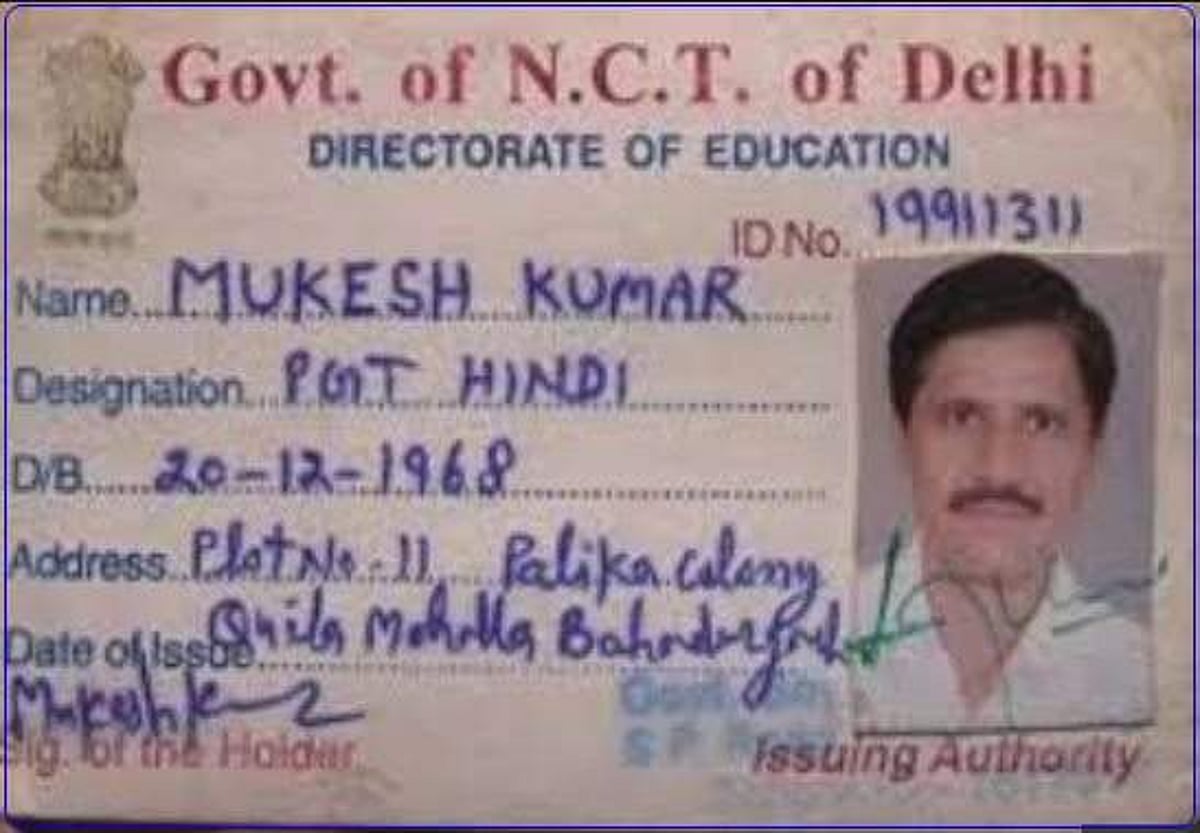 Govt. of N.C.T. of Delhi
DIRECTORATE OF EDUCATION
ID No. 19911311
Name... MUKESH KUMAR
Designation... PGT HINDI
D/B..... 20-12-1968
Address.. Plot No - 11 Palika Colony
Quila Mohalla Bahadurgarh
Date of Issue
Mukesh
Sig. of the Holder
Issuing Authority